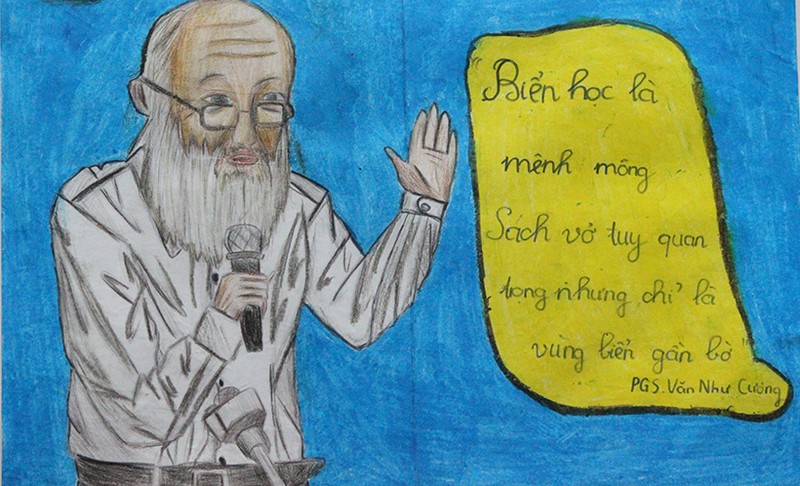 Biển học là
mênh mông
Sách vở tuy quan
trọng nhưng chỉ là
vùng biển gần bờ
PGS. Văn Như Cương